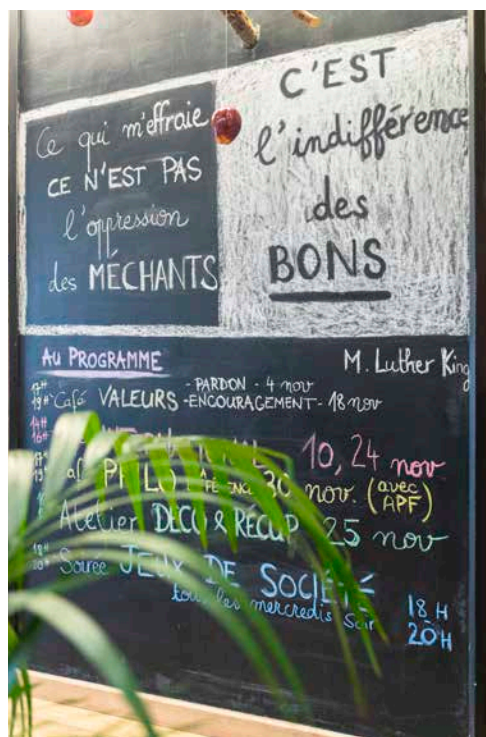 Ce qui m'effraie
CE N'EST PAS
l'oppression
des MÉCHANTS
C'EST
l'indifférence
des
BONS
AU PROGRAMME
M. Luther King
17H
19H Café VALEURS - PARDON - 4 nov
- ENCOURAGEMENT - 18 nov
14H
16H
10, 24 nov
PHILO 30 nov. (avec
APF)
Atelier DÉCO & RÉCUP 25 nov
18H
20H Soirée JEUX DE SOCIÉTÉ
tous les mercredis soir
18 H
20 H